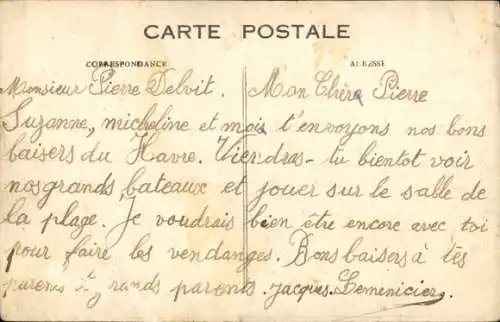 CARTE POSTALE
CORRESPONDANCE
ADRESSE
Monsieur Pierre Delvit. Mon Chère Pierre
Suzanne, micheline et moi t'envoyons nos bons
baisers du Havre. Viendras-tu bientot voir
nos grands bateaux et jouer sur le salle de
la plage. Je voudrais bien être encore avec toi
pour faire les vendanges. Bons baisers à tes
parents et grands parents. Jacques Lemenicier